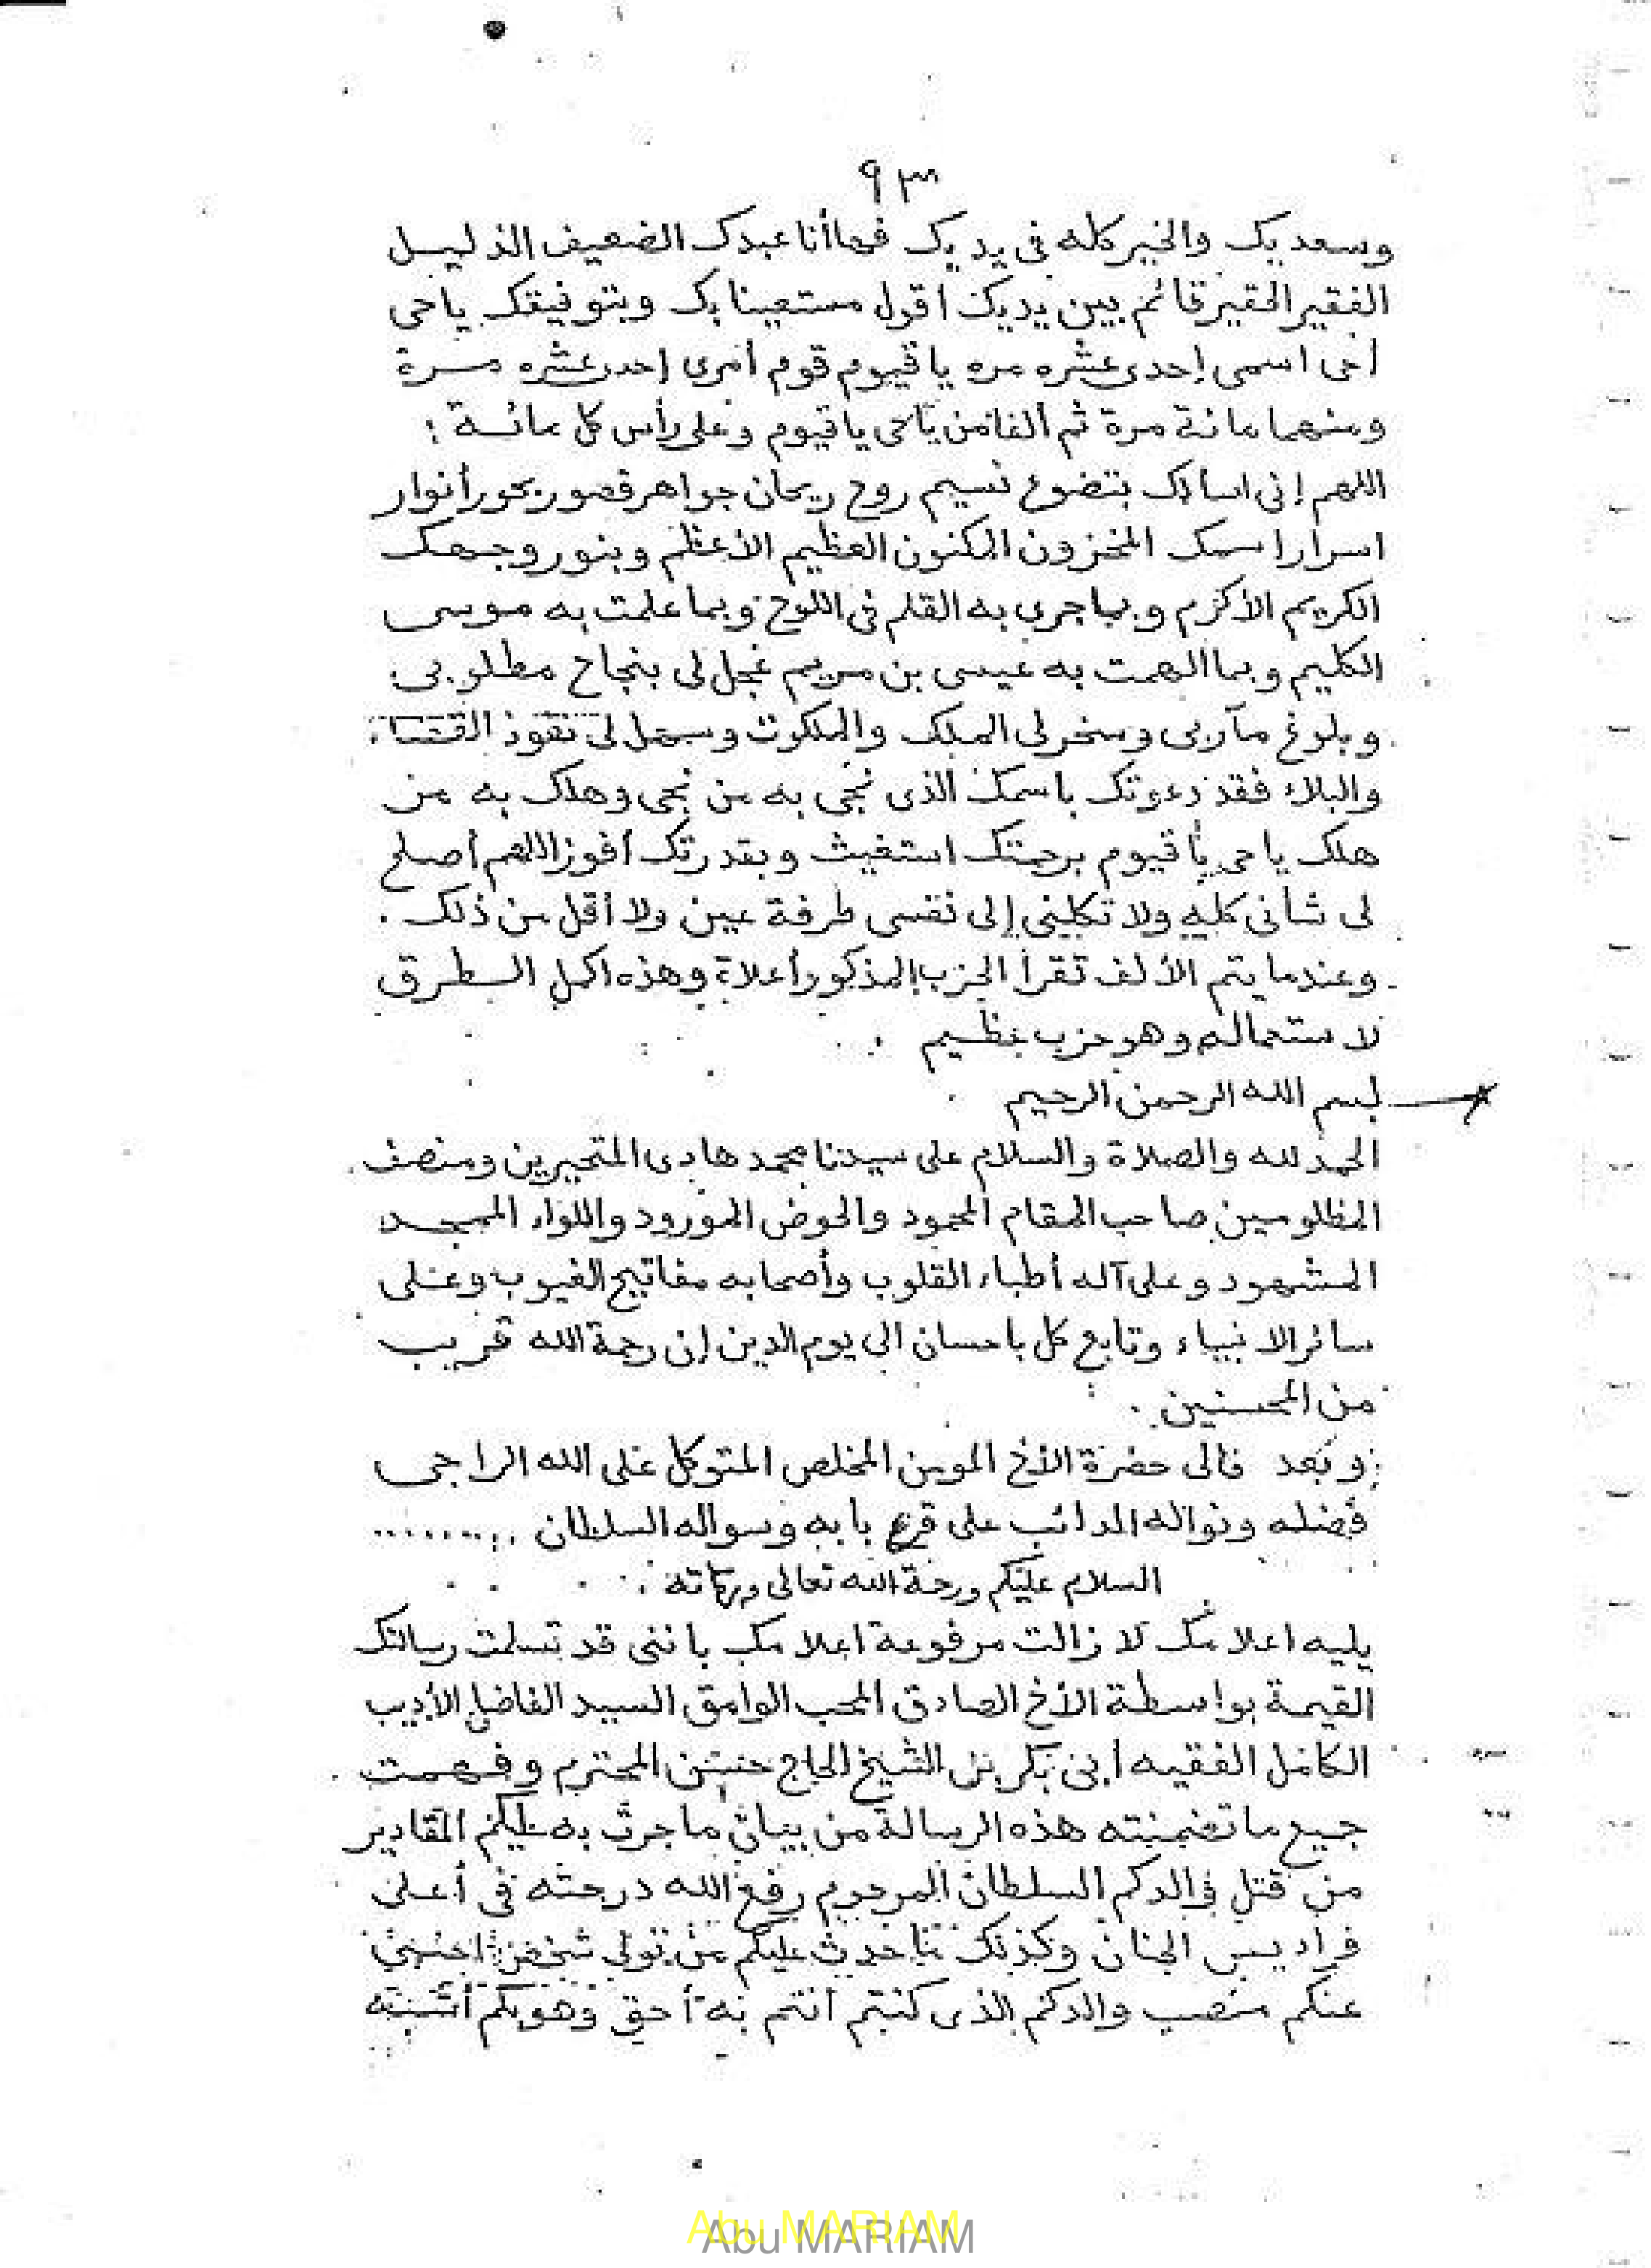 ٩٣
وسعديك والخير كله فى يديك فها أنا عبدك الضعيف الذليل
الفقير الحقير قائم بين يديك اقول مستعينا بك وبتوفيقك ياحى
أحى اسمى إحدى عشره مره ياقيوم قوم أمرى إحدى عشره مرة
ومنهما مائة مرة ثم ألفا من ياحى ياقيوم وعلى رأس كل مائة :
اللهم إنى اسألك بتضوع نسيم روح ريحان جواهر قصور بحور أنوار
اسرار اسمك المخزون المكنون العظيم الأعظم وبنور وجهك
الكريم الأكرم وبما جرى به القلم فى اللوح وبما علمت به موسى
الكليم وبما الهمت به عيسى بن مريم عجل لى بنجاح مطلوبى
وبلوغ مآربى وسخر لى الملك والملكوت وسهل لى نفوذ القضاء
والبلاء فقد دعوتك باسمك الذى نجى به من نجى وهلك به من
هلك ياحى ياقيوم برحمتك استغيث وبقدرتك أفوز اللهم أصلح
لى شأنى كله ولا تكلينى إلى نفسى طرفة عين ولا أقل من ذلك .
وعندما يتم الألف تقرأ الحزب المذكور أعلاه وهذه اكمل الطرق
لاستعماله وهو حزب عظيم
بسم الله الرحمن الرحيم
الحمد لله والصلاة والسلام على سيدنا محمد هادى المتحيرين ومنصف
المظلومين صاحب المقام المحمود والحوض المورود واللواء الممجد
المشهود وعلى آله أطباء القلوب وأصحابه مفاتيح الغيوب وعلى
سائر الانبياء وتابع كل باحسان الى يوم الدين إن رحمة الله قريب
من المحسنين .
وبعد فالى حضرة الأخ المومن المخلص المتوكل على الله الراجى
فضله ونواله الدائب على قرع بابه وسواله السلطان ........
السلام عليكم ورحمة الله تعالى وبركاته .
يليه اعلامك لا زالت مرفوعة اعلامك باننى قد تسلمت رسالتك
القيمة بواسطة الأخ الصادق المحب الوامق السيد الفاضل الأديب
الكامل الفقيه أبى بكر بن الشيخ الحاج حسن المحترم وفهمت
جميع ما تضمنته هذه الرسالة من بيان ما جرت به عليكم المقادير
من قتل والدكم السلطان المرحوم رفع الله درجته فى أعلى
فراديس الجنان وكذلك ما حدث عليكم من تولى شخص اجنبى
عنكم منصب والدكم الذى كنتم انتم به أحق وهو بكم أشبه
Abu MARIAM